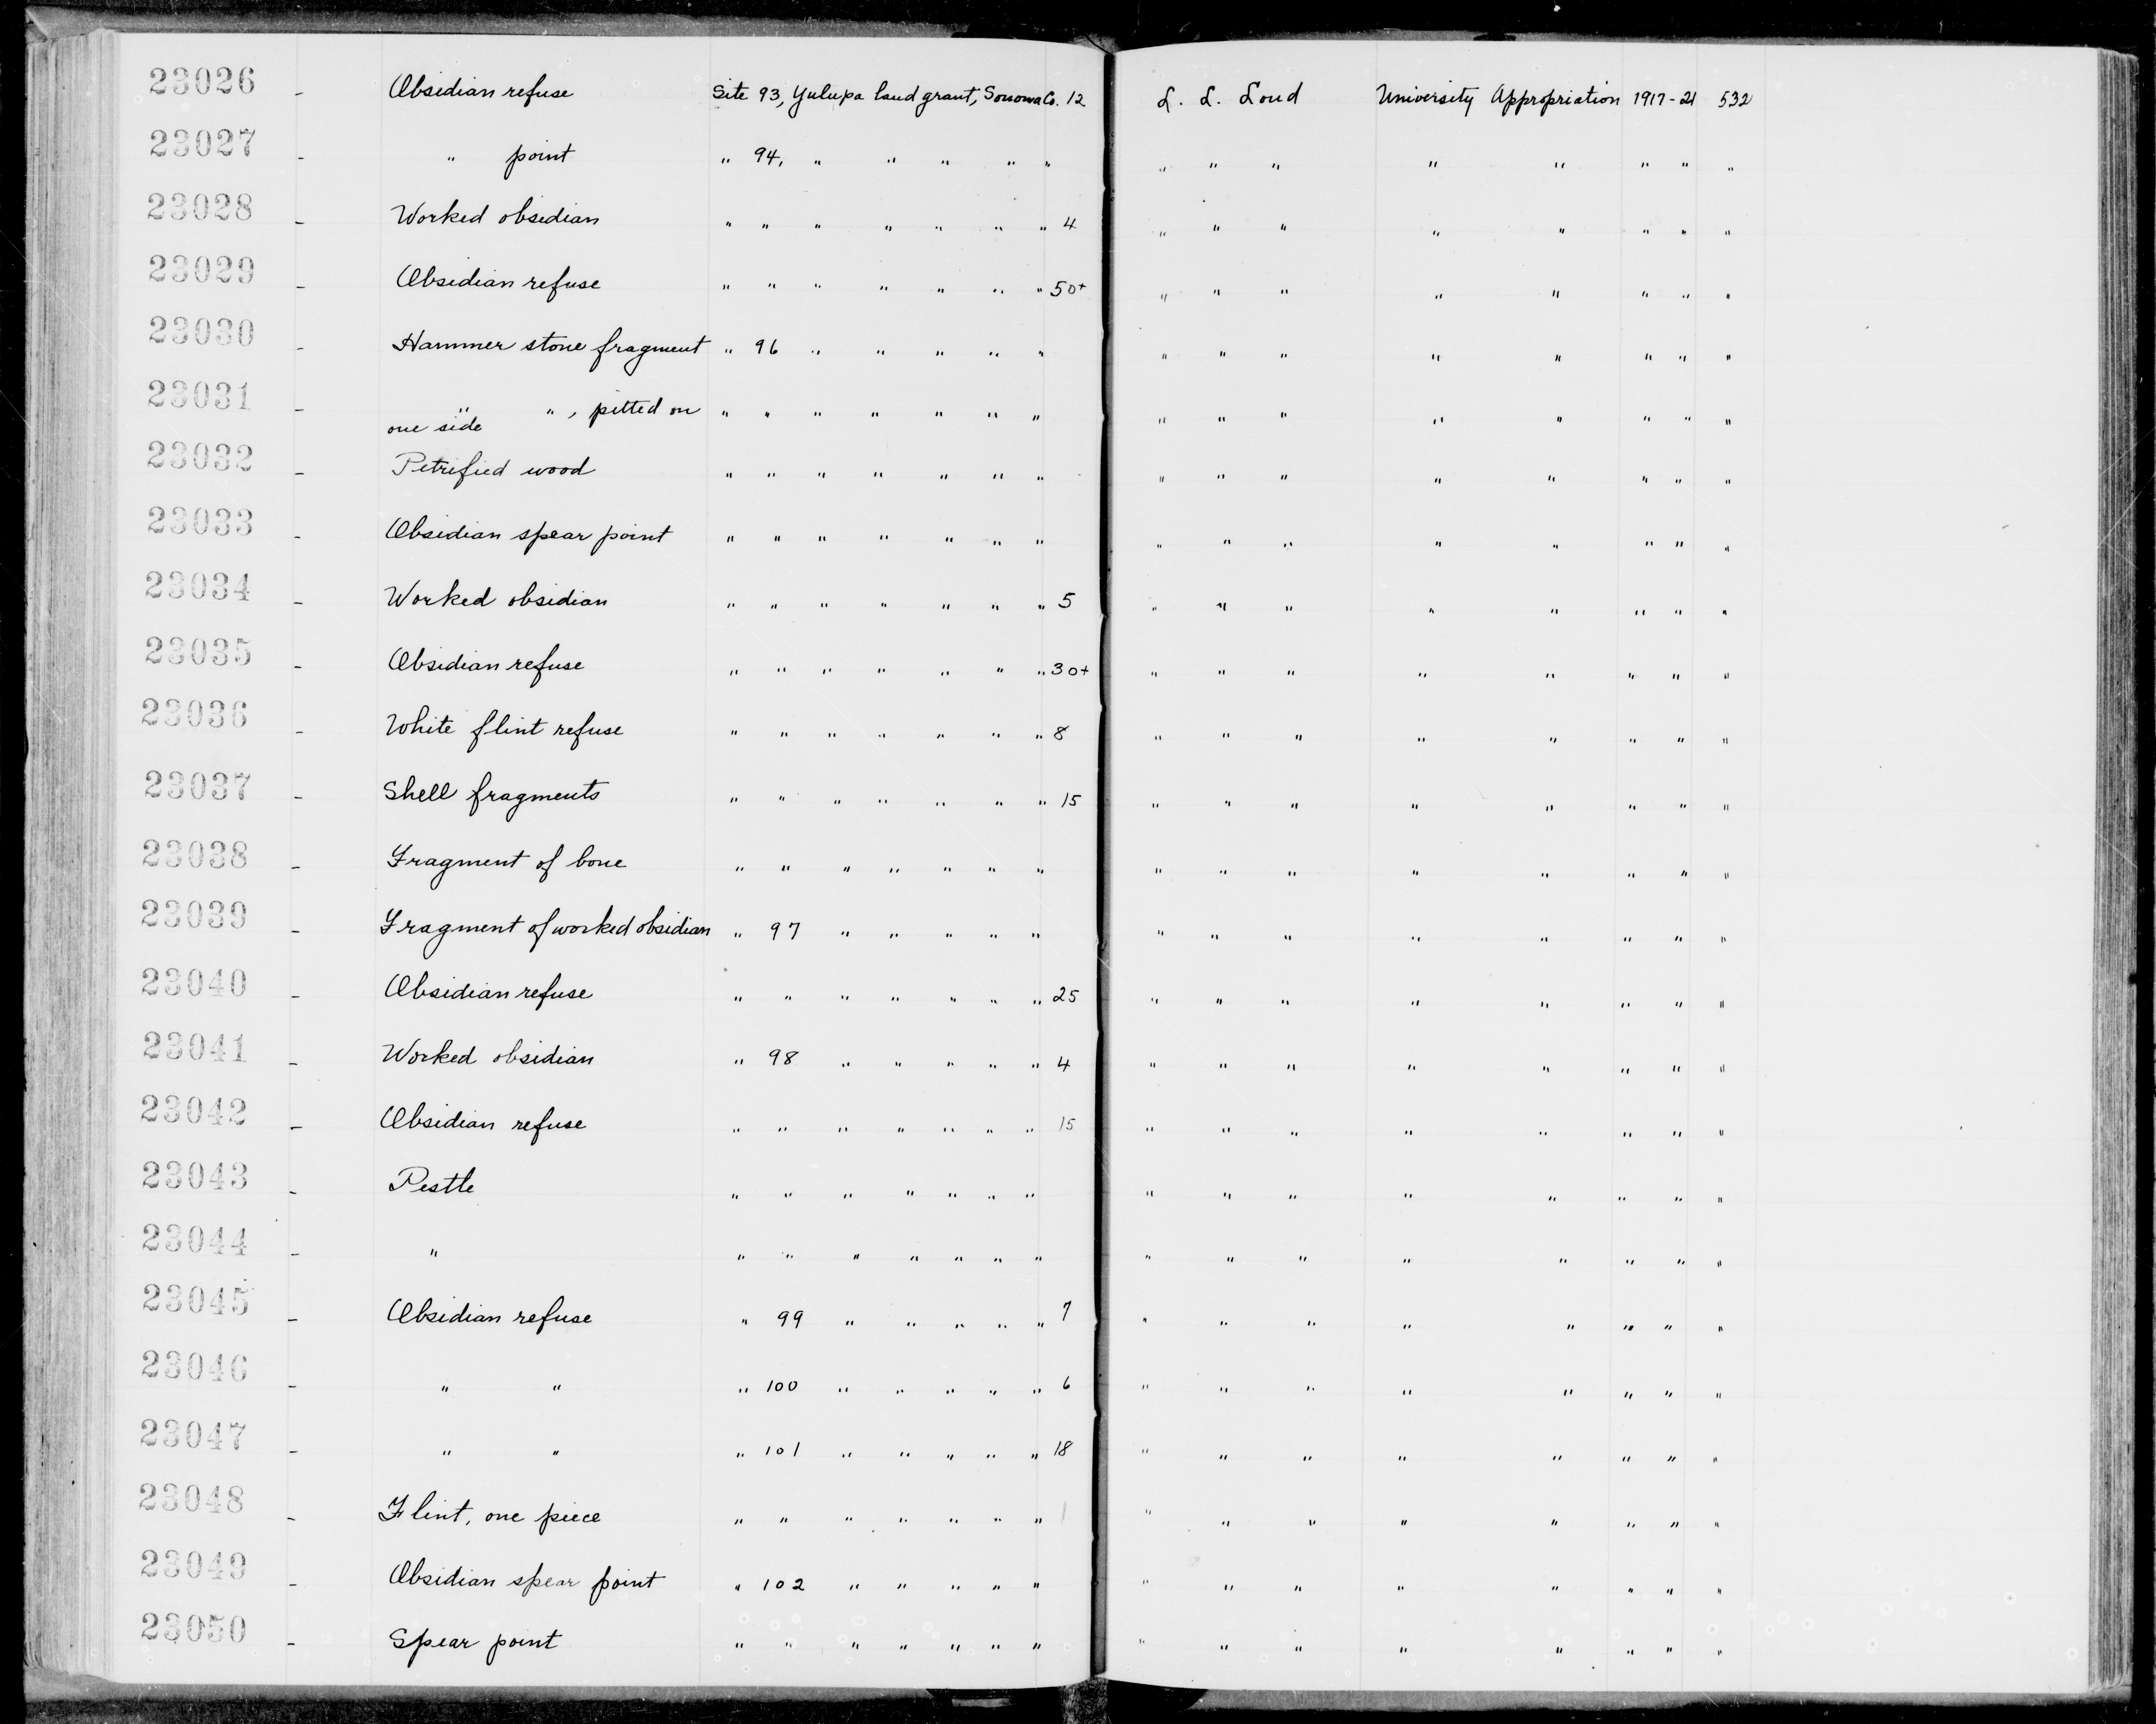 23026 - Obsidian refuse Site 93, Yulupa land grant, Sonoma Co. 12 L. L. Loud University Appropriation 1917-21 532
23027 - " point " 94, " " " " " " " " " " " " "
23028 - Worked obsidian " " " " " " " 4 " " " " " " " "
23029 - Obsidian refuse " " " " " " " 50+ " " " " " " " "
23030 - Hammer stone fragment " 96 " " " " " " " " " " " " "
23031 - " " , pitted on " " " " " " " " " " " " " " "
one side
23032 - Petrified wood " " " " " " " " " " " " " " "
23033 - Obsidian spear point " " " " " " " " " " " " " " "
23034 - Worked obsidian " " " " " " " 5 " " " " " " " "
23035 - Obsidian refuse " " " " " " " 30+ " " " " " " " "
23036 - White flint refuse " " " " " " " 8 " " " " " " " "
23037 - Shell fragments " " " " " " " 15 " " " " " " " "
23038 - Fragment of bone " " " " " " " " " " " " " " "
23039 - Fragment of worked obsidian " 97 " " " " " " " " " " " " "
23040 - Obsidian refuse " " " " " " " 25 " " " " " " " "
23041 - Worked obsidian " 98 " " " " " 4 " " " " " " " "
23042 - Obsidian refuse " " " " " " " 15 " " " " " " " "
23043 - Pestle " " " " " " " " " " " " " " "
23044 - " " " " " " " " " " " " " " " "
23045 - Obsidian refuse " 99 " " " " " 7 " " " " " " " "
23046 - " " " 100 " " " " " 6 " " " " " " " "
23047 - " " " 101 " " " " " 18 " " " " " " " "
23048 - Flint, one piece " " " " " " " 1 " " " " " " " "
23049 - Obsidian spear point " 102 " " " " " " " " " " " " "
23050 - Spear point " " " " " " " " " " " " " " "